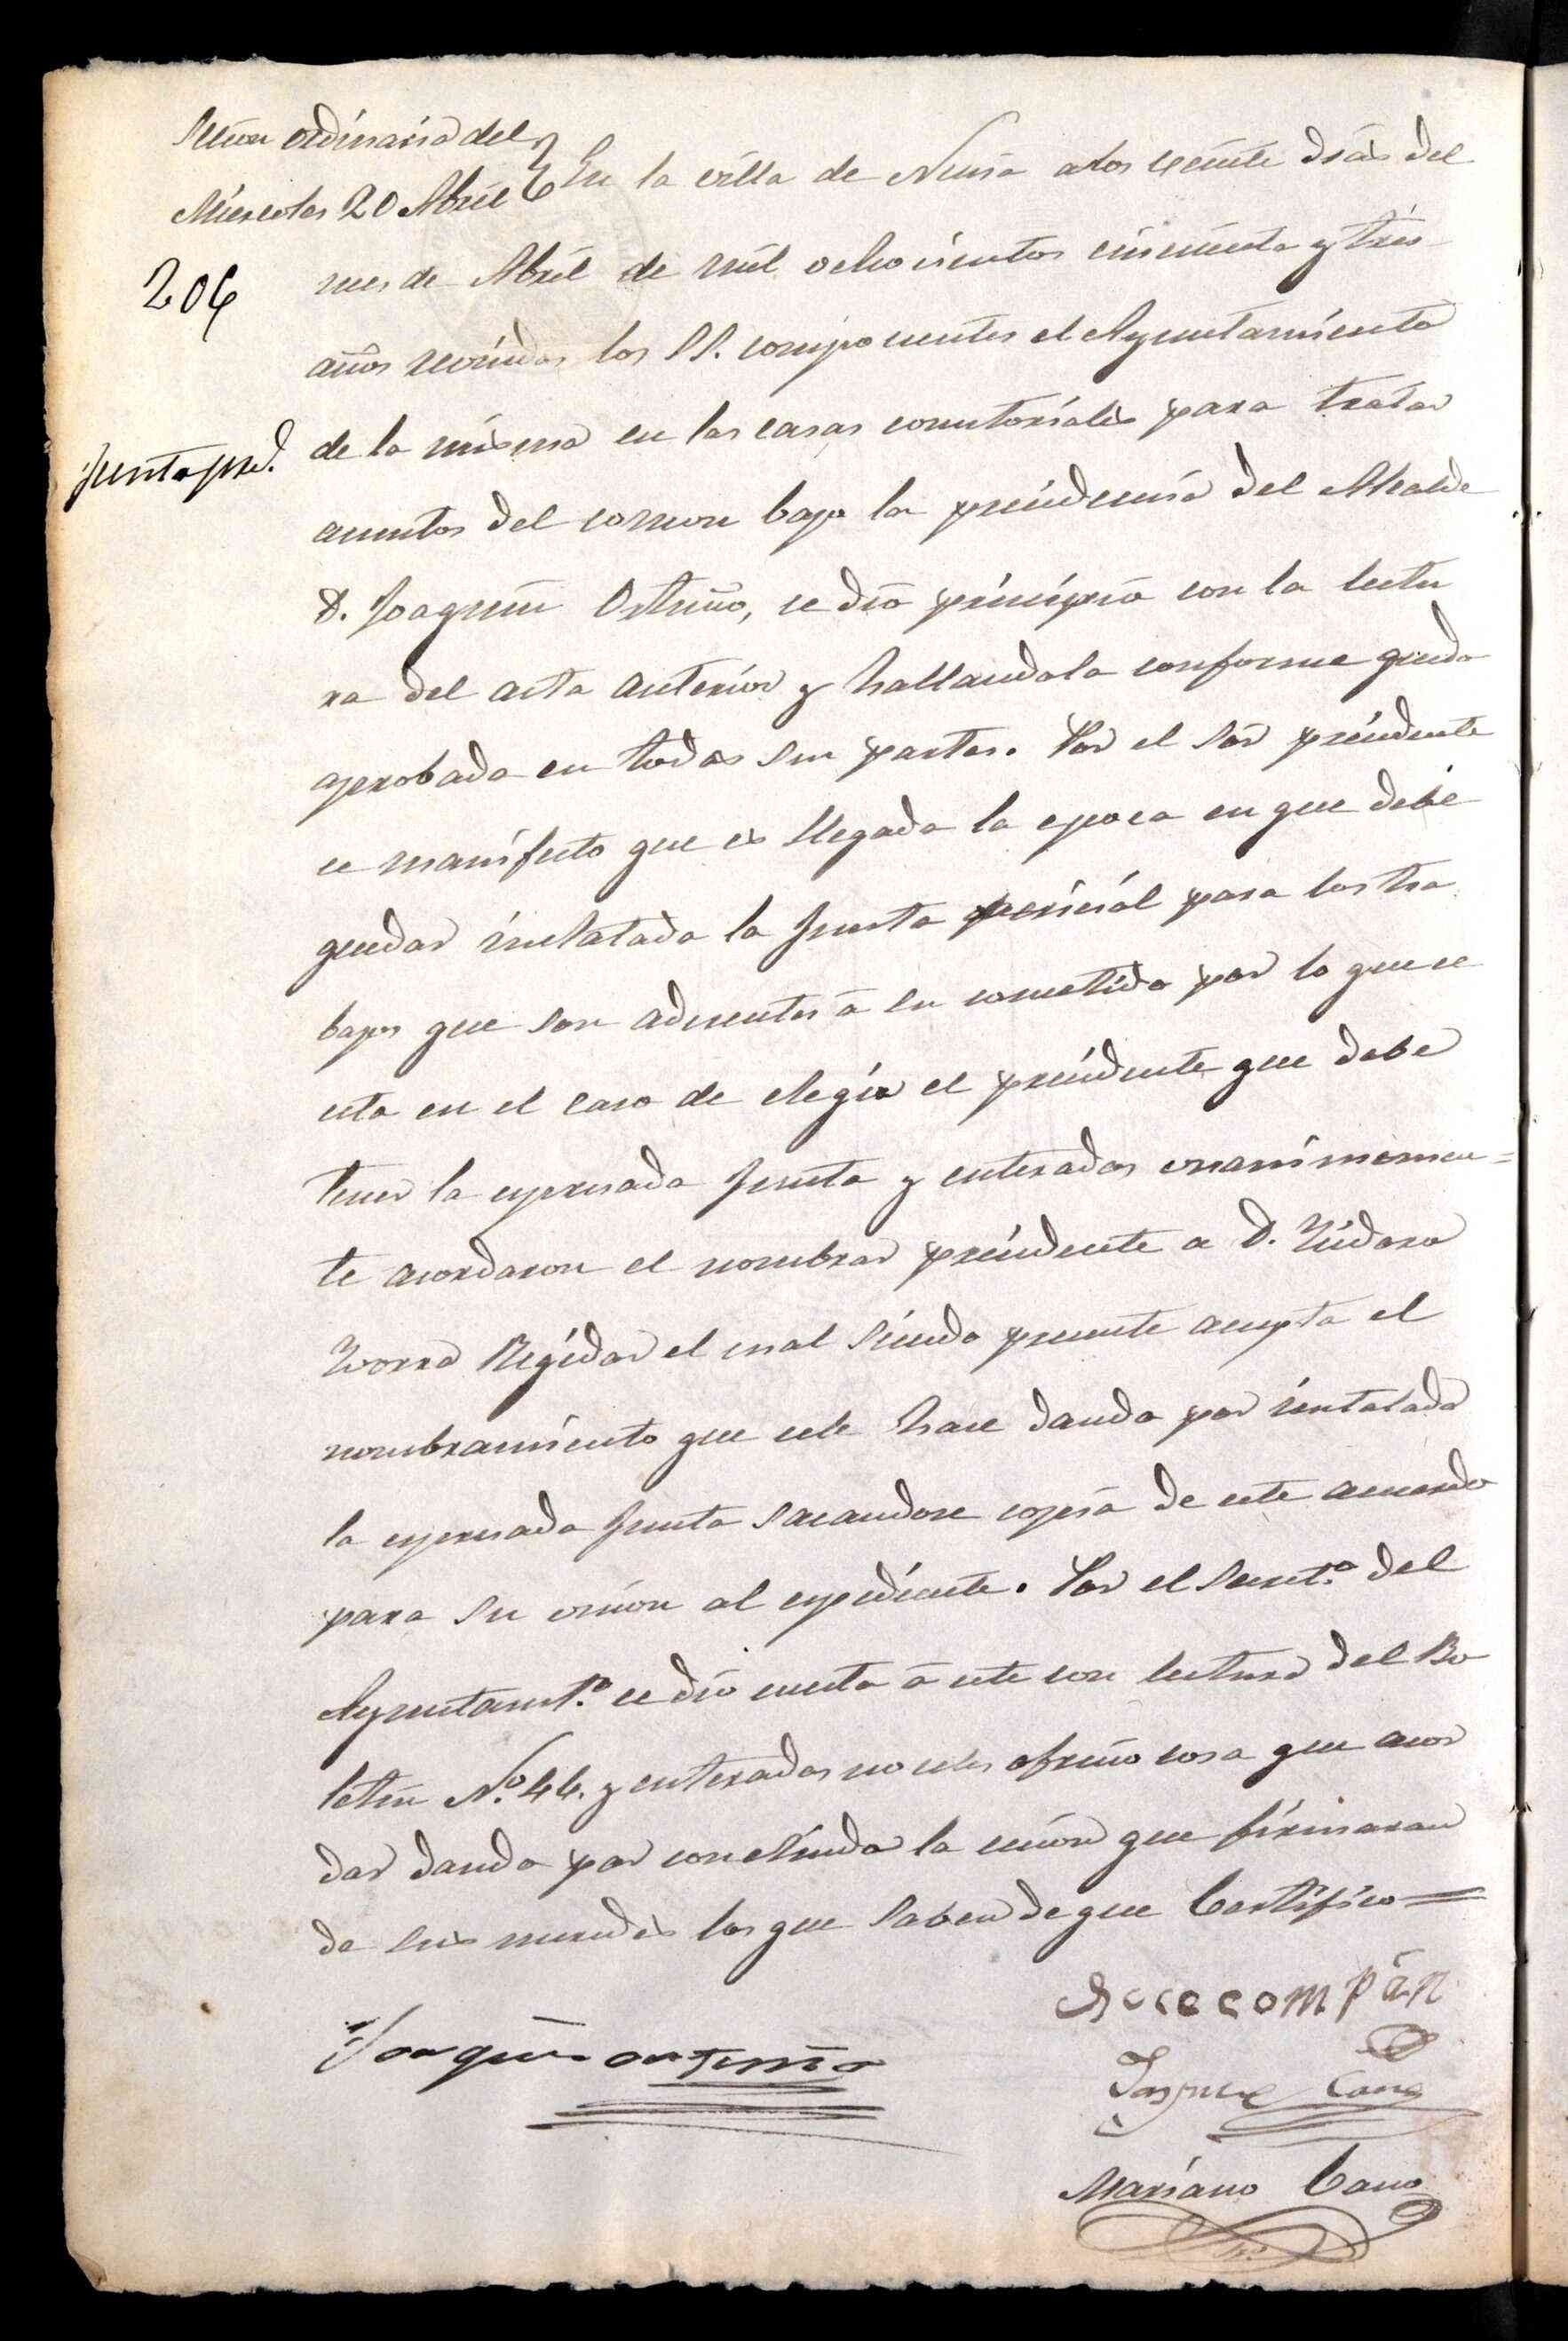 Sesion ordinaria del
Miercoles 20 Abril
206
Junta per.l
En la villa de Nerpio a los veinte dias del
mes de Abril de mil ochocientos cincuenta y tres
años reunidos los SS. componentes el Ayuntamiento
de la misma en las casas consistoriales para tratar
asuntos del comun bajo la presidencia del Alcalde
D. Joaquin Ortuño, se dió principio con la lectu
ra del acta anterior y hallandola conforme queda
aprobada en todas sus partes. Por el Sor presidente
se manifesto que es llegada la epoca en que debe
quedar instalada la Junta pericial para los tra
bajos que son adherentes á su cometido por lo que se
esta en el caso de elegir el presidente que debe
tener la expresada Junta y enterados unanimemen=
te acordaron el nombrar presidente a D. Ysidoro
Regidor el cual siendo presente acepta el
nombramiento que sele hace dando por instalada
la expresada Junta sacandose copia de este acuerdo
para su union al expediente. Por el Secret.o del
Ayuntamt.o se dió cuenta á este con lectura del Bo
letin N.o 46. y enterados no seles ofreció cosa que acor
dar dando por concluida la sesion que firmaran
de sus mercedes los que saben de que Certifico=
Jose compan
Joaquin ortuño
Cano
Mariano Cano